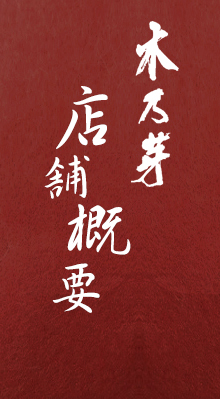 木乃芽
店舗概要